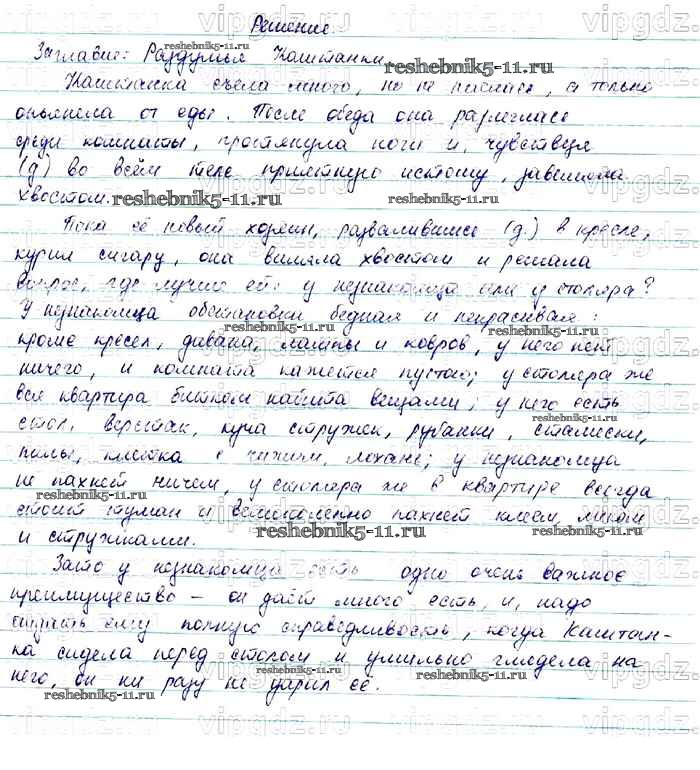 Решение.
Заглавие: Раздумья Каштанки
Каштанка съела много, но не наелась, а только
опьянела от еды. После обеда она разлеглась
среди комнаты, протянула ноги и, чувствуя
(д) во всём теле приятную истому, завиляла
хвостом.
Пока её новый хозяин, развалившись (д.) в кресле,
курил сигару, она виляла хвостом и решала
вопрос, где лучше ей: у незнакомца или у столяра?
У незнакомца обстановка бедная и некрасивая:
кроме кресел, дивана, лампы и ковров, у него нет
ничего, и комната кажется пустою; у столяра же
вся квартира битком набита вещами; у него есть
стол, верстак, куча стружек, рубанки, стамески,
пилы, клетка с чижом, лохань; у незнакомца
не пахнет ничем, у столяра же в квартире всегда
стоит туман и великолепно пахнет клеем, лаком
и стружками.
Зато у незнакомца есть одно очень важное
преимущество — он даёт много есть, и, надо
отдать ему полную справедливость, когда Каштан-
ка сидела перед столом и умильно глядела на
него, он ни разу не ударил её.
reshebnik5-11.ru
vipgdz.ru